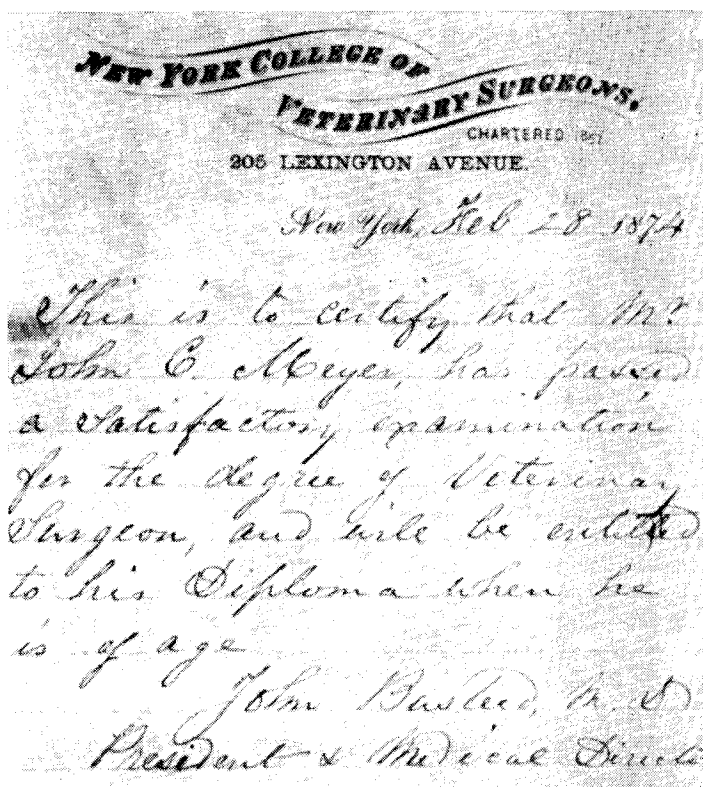 NEW YORK COLLEGE OF
VETERINARY SURGEONS,
CHARTERED 1857
205 LEXINGTON AVENUE.
New York, Feb 28 1874
This is to certify that Mr
John C. Meyer, has passed
a Satisfactory examination
for the degree of Veterinary
Surgeon, and will be entitled
to his Diploma when he
is of age
John Busteed, M. D
President & Medical Directo